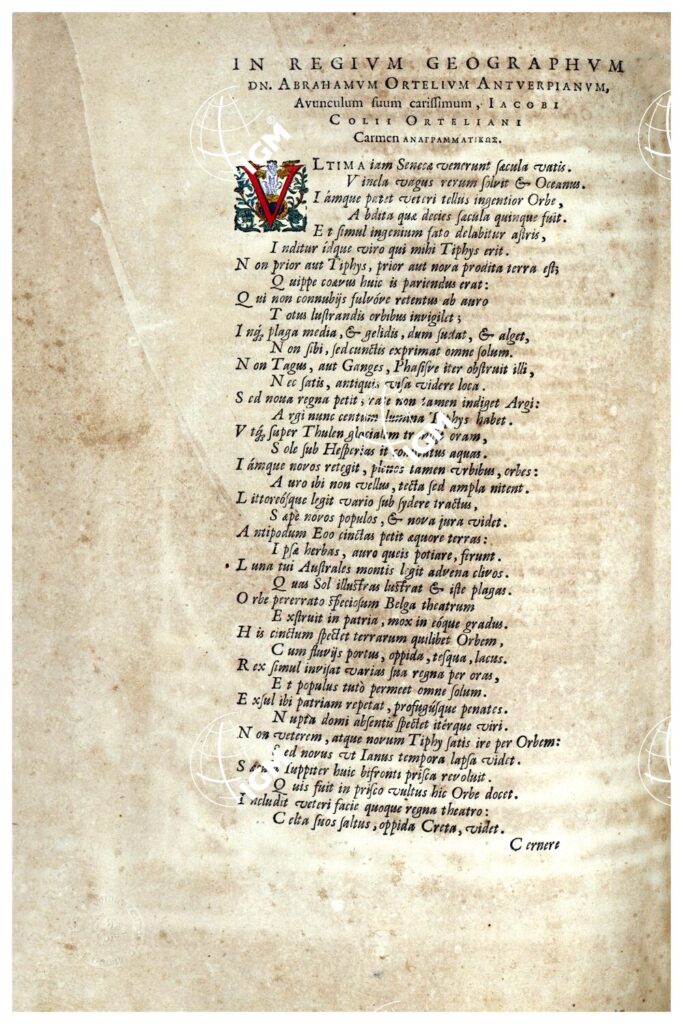 IN REGIVM GEOGRAPHVM
DN. ABRAHAMVM ORTELIVM ANTVERPIANVM,
Avunculum suum carissimum, IACOBI
COLII ORTELIANI
Carmen ΑΝΑΓΡΑΜΜΑΤΙΚΩΣ.
VLTIMA iam Senecæ venerunt sæcula vatis.
Vincla vagus rerum solvit & Oceanus.
Iámque patet veteri tellus ingentior Orbe,
Abdita quæ decies sæcula quinque fuit.
Et simul ingenium fato delabitur astris,
Inditur idque viro qui mihi Tiphys erit.
Non prior aut Tiphys, prior aut nova prodita terra est;
Quippe coævus huic is pariendus erat:
Qui non connubijs fulvóve retentus ab auro
Totus lustrandis orbibus invigilet;
Inq́; plaga media, & gelidis, dum sudat, & alget,
Non sibi, sed cunctis exprimat omne solum.
Non Tagus, aut Ganges, Phasisve iter obstruit illi,
Nec satis, antiquis visa videre loca.
Sed noua regna petit; rate non tamen indiget Argi:
Argi nunc centum lumina Tiphys habet.
Vtq́; super Thulen glacialem oram,
Sole sub Hesperias it aquas.
Iámque novos retegit, plenos tamen vrbibus, orbes:
Auro ibi non vellus, tecta sed ampla nitent.
Littoreósque legit vario sub sydere tractus,
Sæpe novos populos, & nova jura videt.
Antipodum Eoo cinctas petit æquore terras:
Ipsæ herbas, auro queis potiare, ferunt.
Luna tui Australes montis legit advena clivos.
Quas Sol illustras lustrat & iste plagas.
Orbe pererrato speciosum Belga theatrum
Exstruit in patria, mox in eóque gradus.
His cinctum spectet terrarum quilibet Orbem,
Cum fluvijs portus, oppida, tesqua, lacus.
Rex simul invisat varias sua regna per oras,
Et populus tutò permeet omne solum.
Exsul ibi patriam repetat, profugúsque penates.
Nupta domi absentis spectet itérque viri.
Non veterem, atque novum Tiphy satis ire per Orbem:
Sed novus vt Ianus tempora lapsa videt.
Iuppiter huic bifronti prisca revoluit.
Quis fuit in prisco vultus hic Orbe docet.
Includit veteri facie quoque regna theatro:
Celta suos saltus, oppida Creta, videt.
Cernere